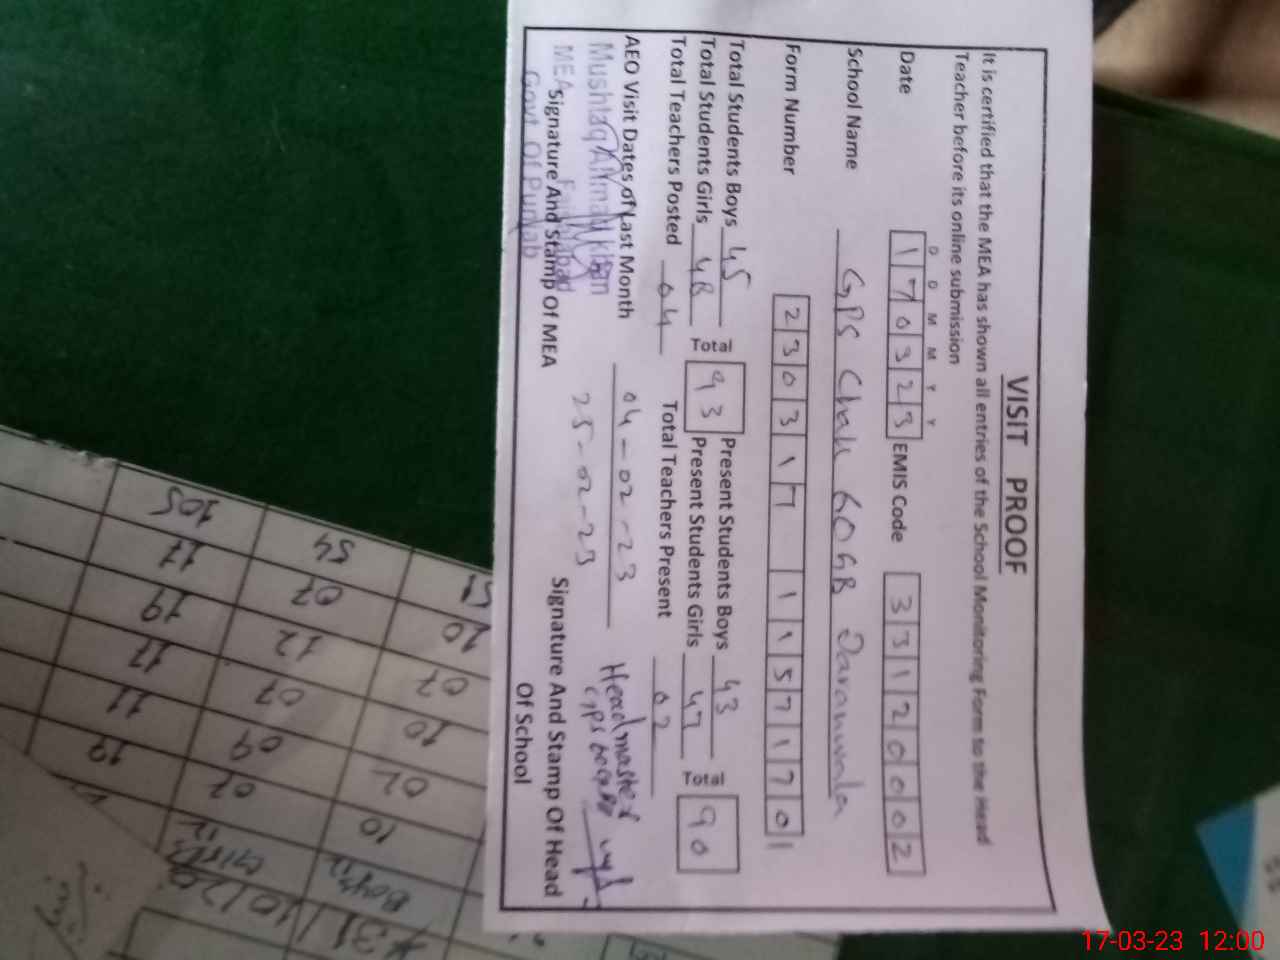 VISIT PROOF
It is certified that the MEA has shown all entries of the School Monitoring Form to the Head
Teacher before its online submission
D D M M Y Y
Date 170323 EMIS Code 33120002
School Name GPS Chak 60GB Daranwala
Form Number 230317 11571701
Total Students Boys 45 Present Students Boys 43
Total 93 Total 90
Total Students Girls 48 Present Students Girls 47
Total Teachers Posted 04 Total Teachers Present 02
AEO Visit Dates of Last Month 04-02-23
25-02-23
Mushtaq Ahmad Khan
MEA Faisalabad
Govt. Of Punjab
Signature And Stamp Of MEA
Headmaster
GPS 60GB
Signature And Stamp Of Head
Of School
105 54
17 07 20
19 12 07
17 07 10
11 09 02
19 07 10
Girls Boys
17-03-23 12:00